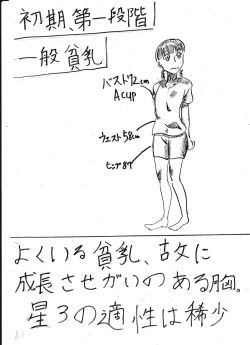 初期、第一段階
一般貧乳
バスト72cm
A cup
ウェスト58cm
ヒップ87
よくいる貧乳、故に
成長させがいのある胸。
星3の適性は稀少